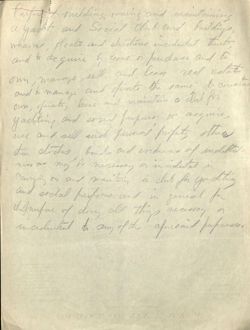 building, owning and maintaining
a Yacht and Social Club and buildings
wharves, floats and
and to acquire by lease or purchase and to
own, manage, sell and lease real estate
and to manage and operate the same, to
own, operate, lease and maintain a club for
yachting and social purposes, to acquire
own and sell such personal property, other
stocks, bonds and evidences of indebted-
ness as may be necessary or incidental in
carrying on and maintaining a club for yachting
and social purposes and in general for
the purpose of doing all things necessary or
incidental to any of the aforesaid purposes.